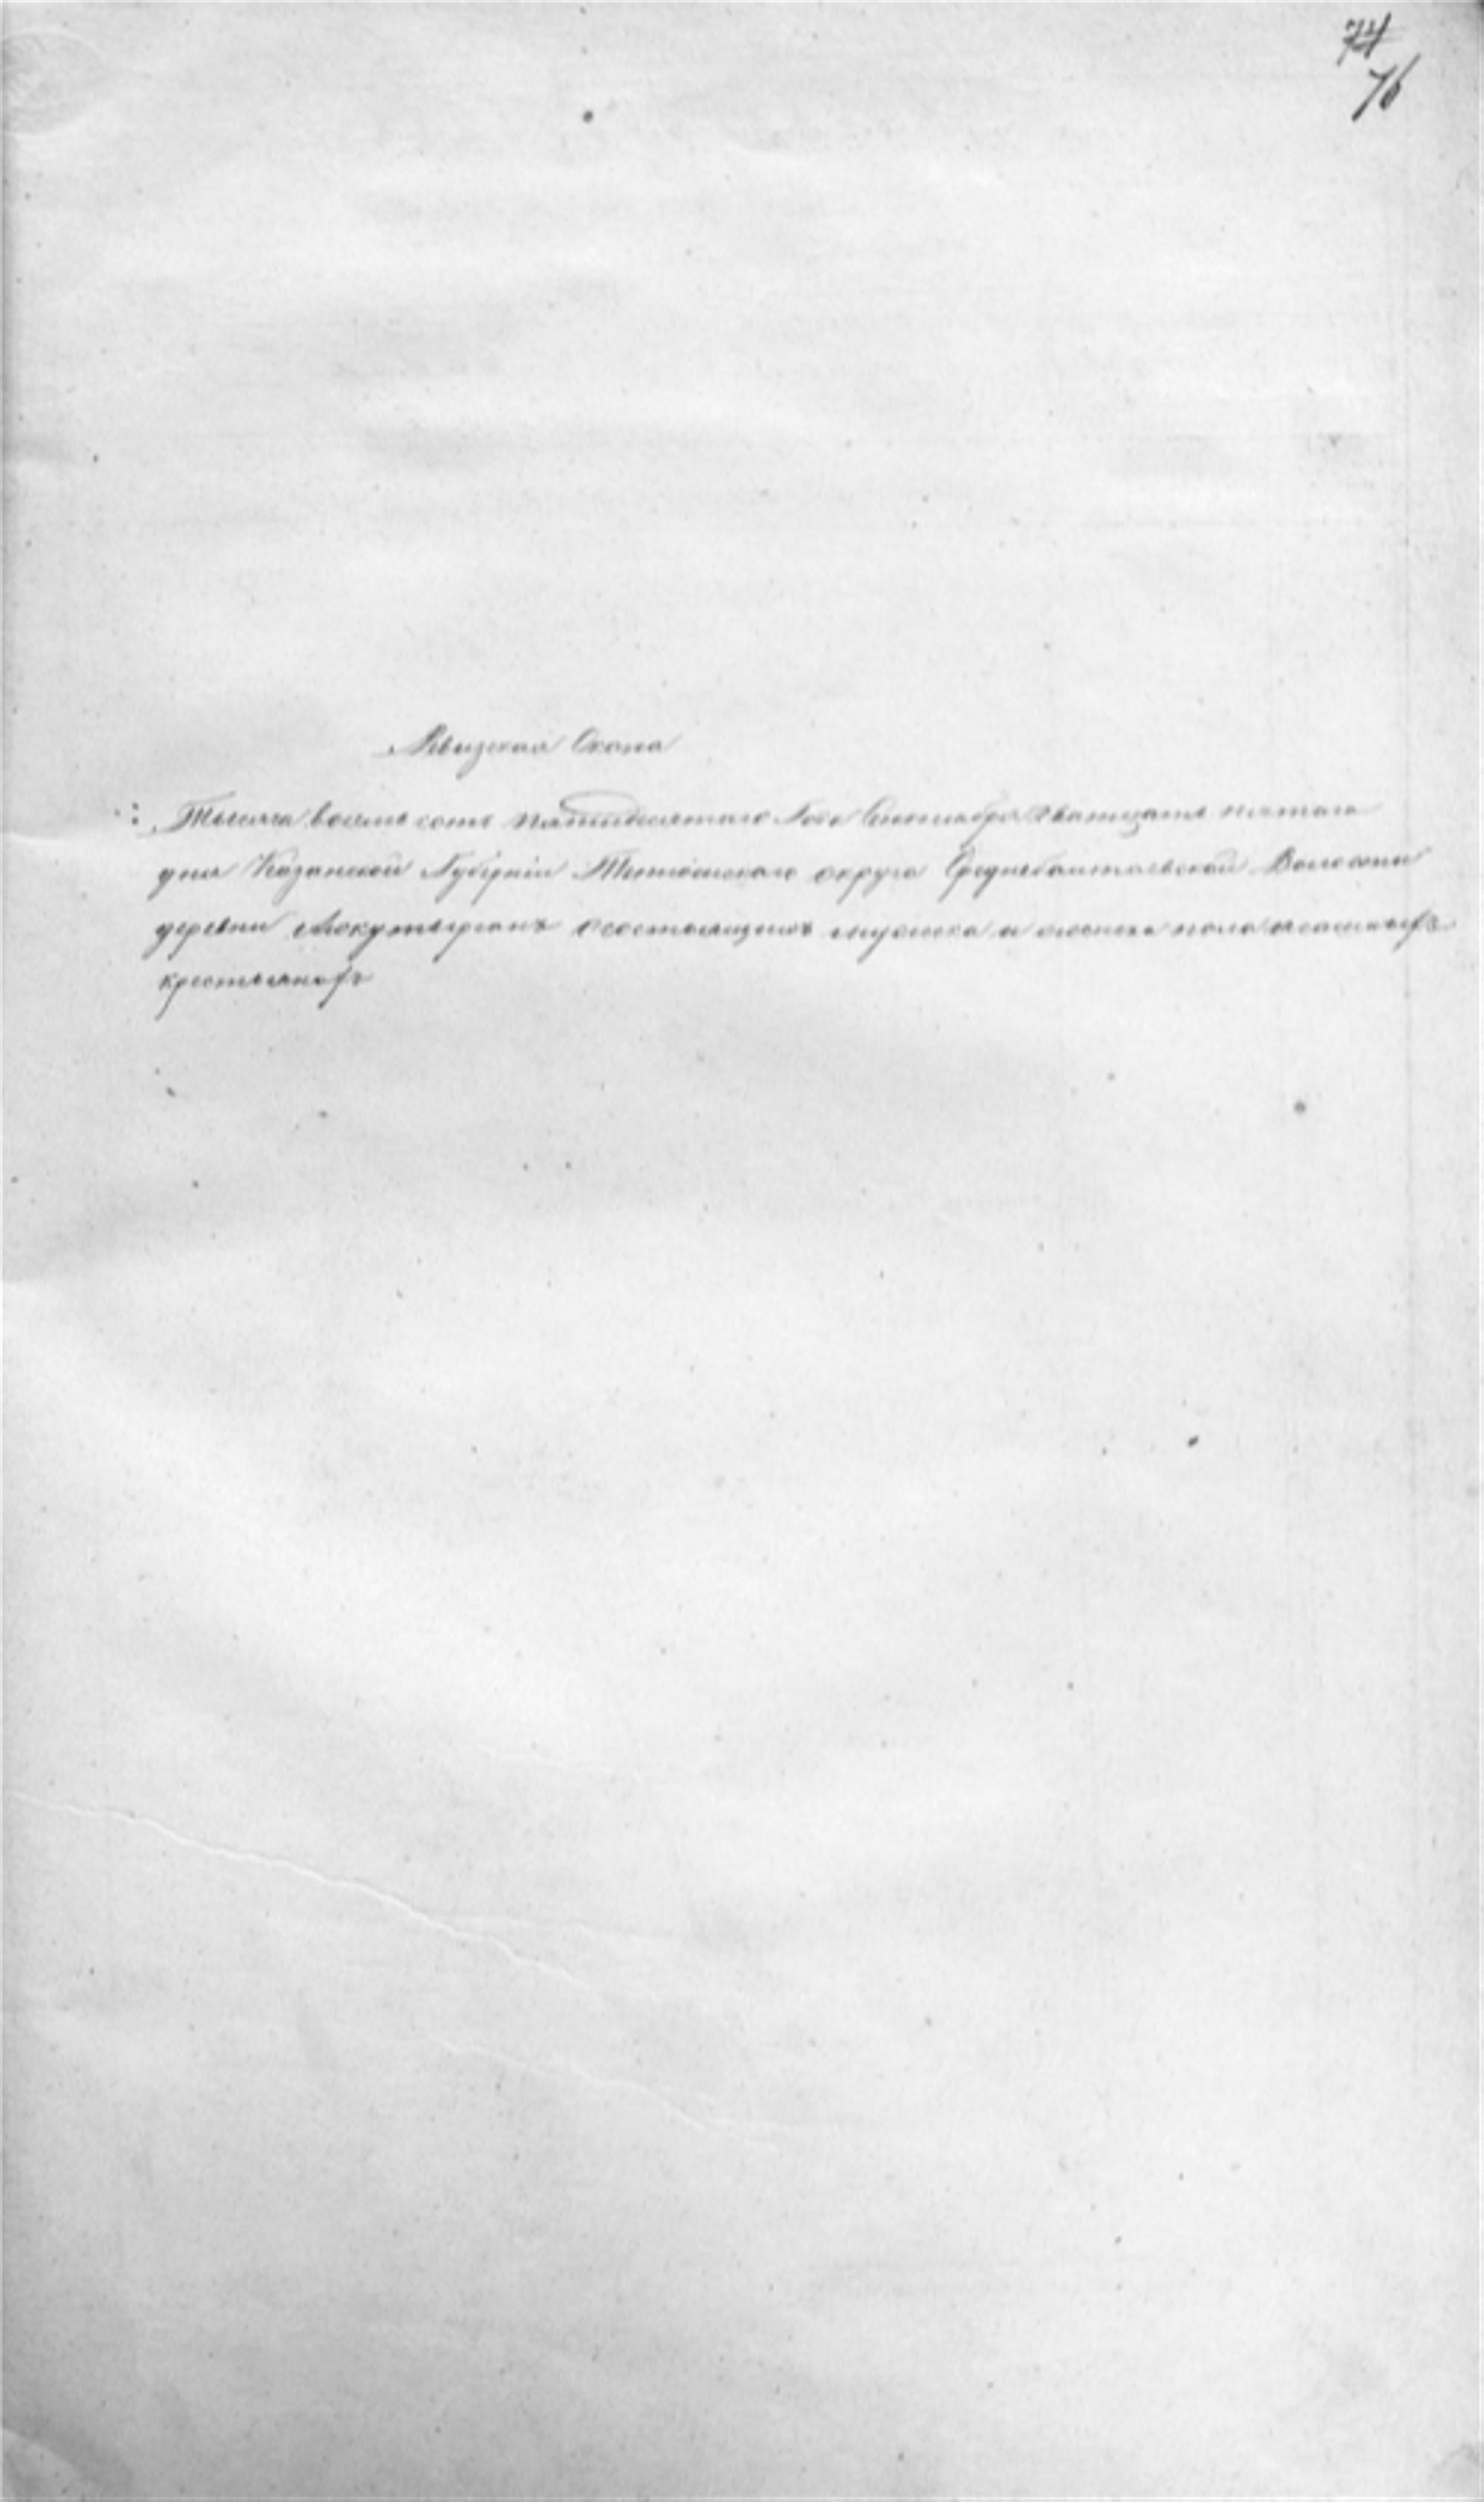 74
76
Ревизская Скаска
Тысяча восемь сотъ пятидесятаго Года Сентября дватцать пятаго
дня Казанской Губерніи Тетюшскаго округа Среднебалтаевской Волости
деревни осостоящихъ мужеска и женска пола
крестьянехъ